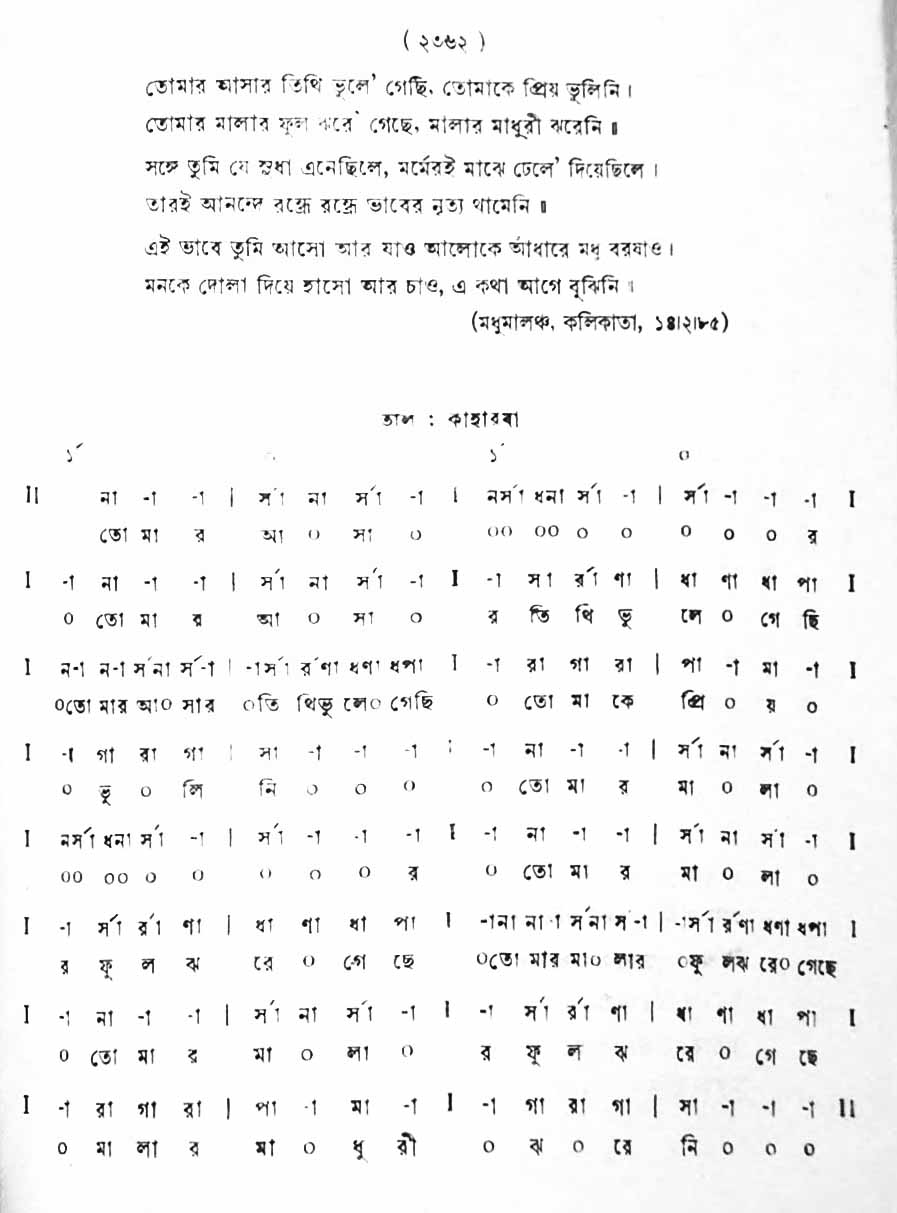 ( ২৩৬২ )
তোমার আসার তিথি ভুলে' গেছি, তোমাকে প্রিয় ভুলিনি।
তোমার মালার ফুল ঝরে' গেছে, মালার মাধুরী ঝরেনি॥
সঙ্গে তুমি যে সুধা এনেছিলে, মর্মেরই মাঝে ঢেলে' দিয়েছিলে।
তারই আনন্দে রন্ধ্রে রন্ধ্রে ভাবের নৃত্য থামেনি॥
এই ভাবে তুমি আসো আর যাও আলোকে আঁধারে মধু বরষাও।
মনকে দোলা দিয়ে হাসো আর চাও, এ কথা আগে বুঝিনি॥
(মধুমালঞ্চ, কলিকাতা, ১৪।২।৮৫)
তাল : কাহারবা
১´ ১´ ০
II না -া -া | র্সা না র্সা -া I নর্সা ধনা র্সা -া | র্সা -া -া -া I
তো মা র আ ০ সা ০ ০০ ০০ ০ ০ ০ ০ ০ র
I -া না -া -া | র্সা না র্সা -া I -া র্সা র্রা ণা | ধা ণা ধা পা I
০ তো মা র আ ০ সা ০ র তি থি ভু লে ০ গে ছি
I ন-া ন-া র্সনা র্স-া | -ার্সা র্রণা ধণা ধপা I -া রা গা রা | পা -া মা -া I
০তো মার আ০ সার ০তি থিভু লে০ গেছি ০ তো মা কে প্রি ০ য় ০
I -া গা রা গা | সা -া -া -া I -া না -া -া | র্সা না র্সা -া I
০ ভু ০ লি নি ০ ০ ০ ০ তো মা র মা ০ লা ০
I নর্সা ধনা র্সা -া | র্সা -া -া -া I -া না -া -া | র্সা না র্সা -া I
০০ ০০ ০ ০ ০ ০ ০ র ০ তো মা র মা ০ লা ০
I -া র্সা র্রা ণা | ধা ণা ধা পা I -ানা না-া র্সনা র্স-া | -ার্সা র্রণা ধণা ধপা I
র ফু ল ঝ রে ০ গে ছে ০তো মার মা০ লার ০ফু লঝ রে০ গেছে
I -া না -া -া | র্সা না র্সা -া I -া র্সা র্রা ণা | ধা ণা ধা পা I
০ তো মা র মা ০ লা ০ র ফু ল ঝ রে ০ গে ছে
I -া রা গা রা | পা -া মা -া I -া গা রা গা | সা -া -া -া II
০ মা লা র মা ০ ধু রী ০ ঝ ০ রে নি ০ ০ ০